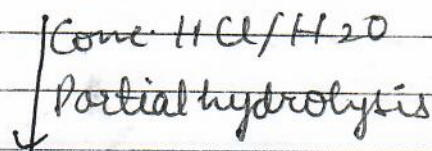 Conc. HCl/H2O
Partial hydrolysis